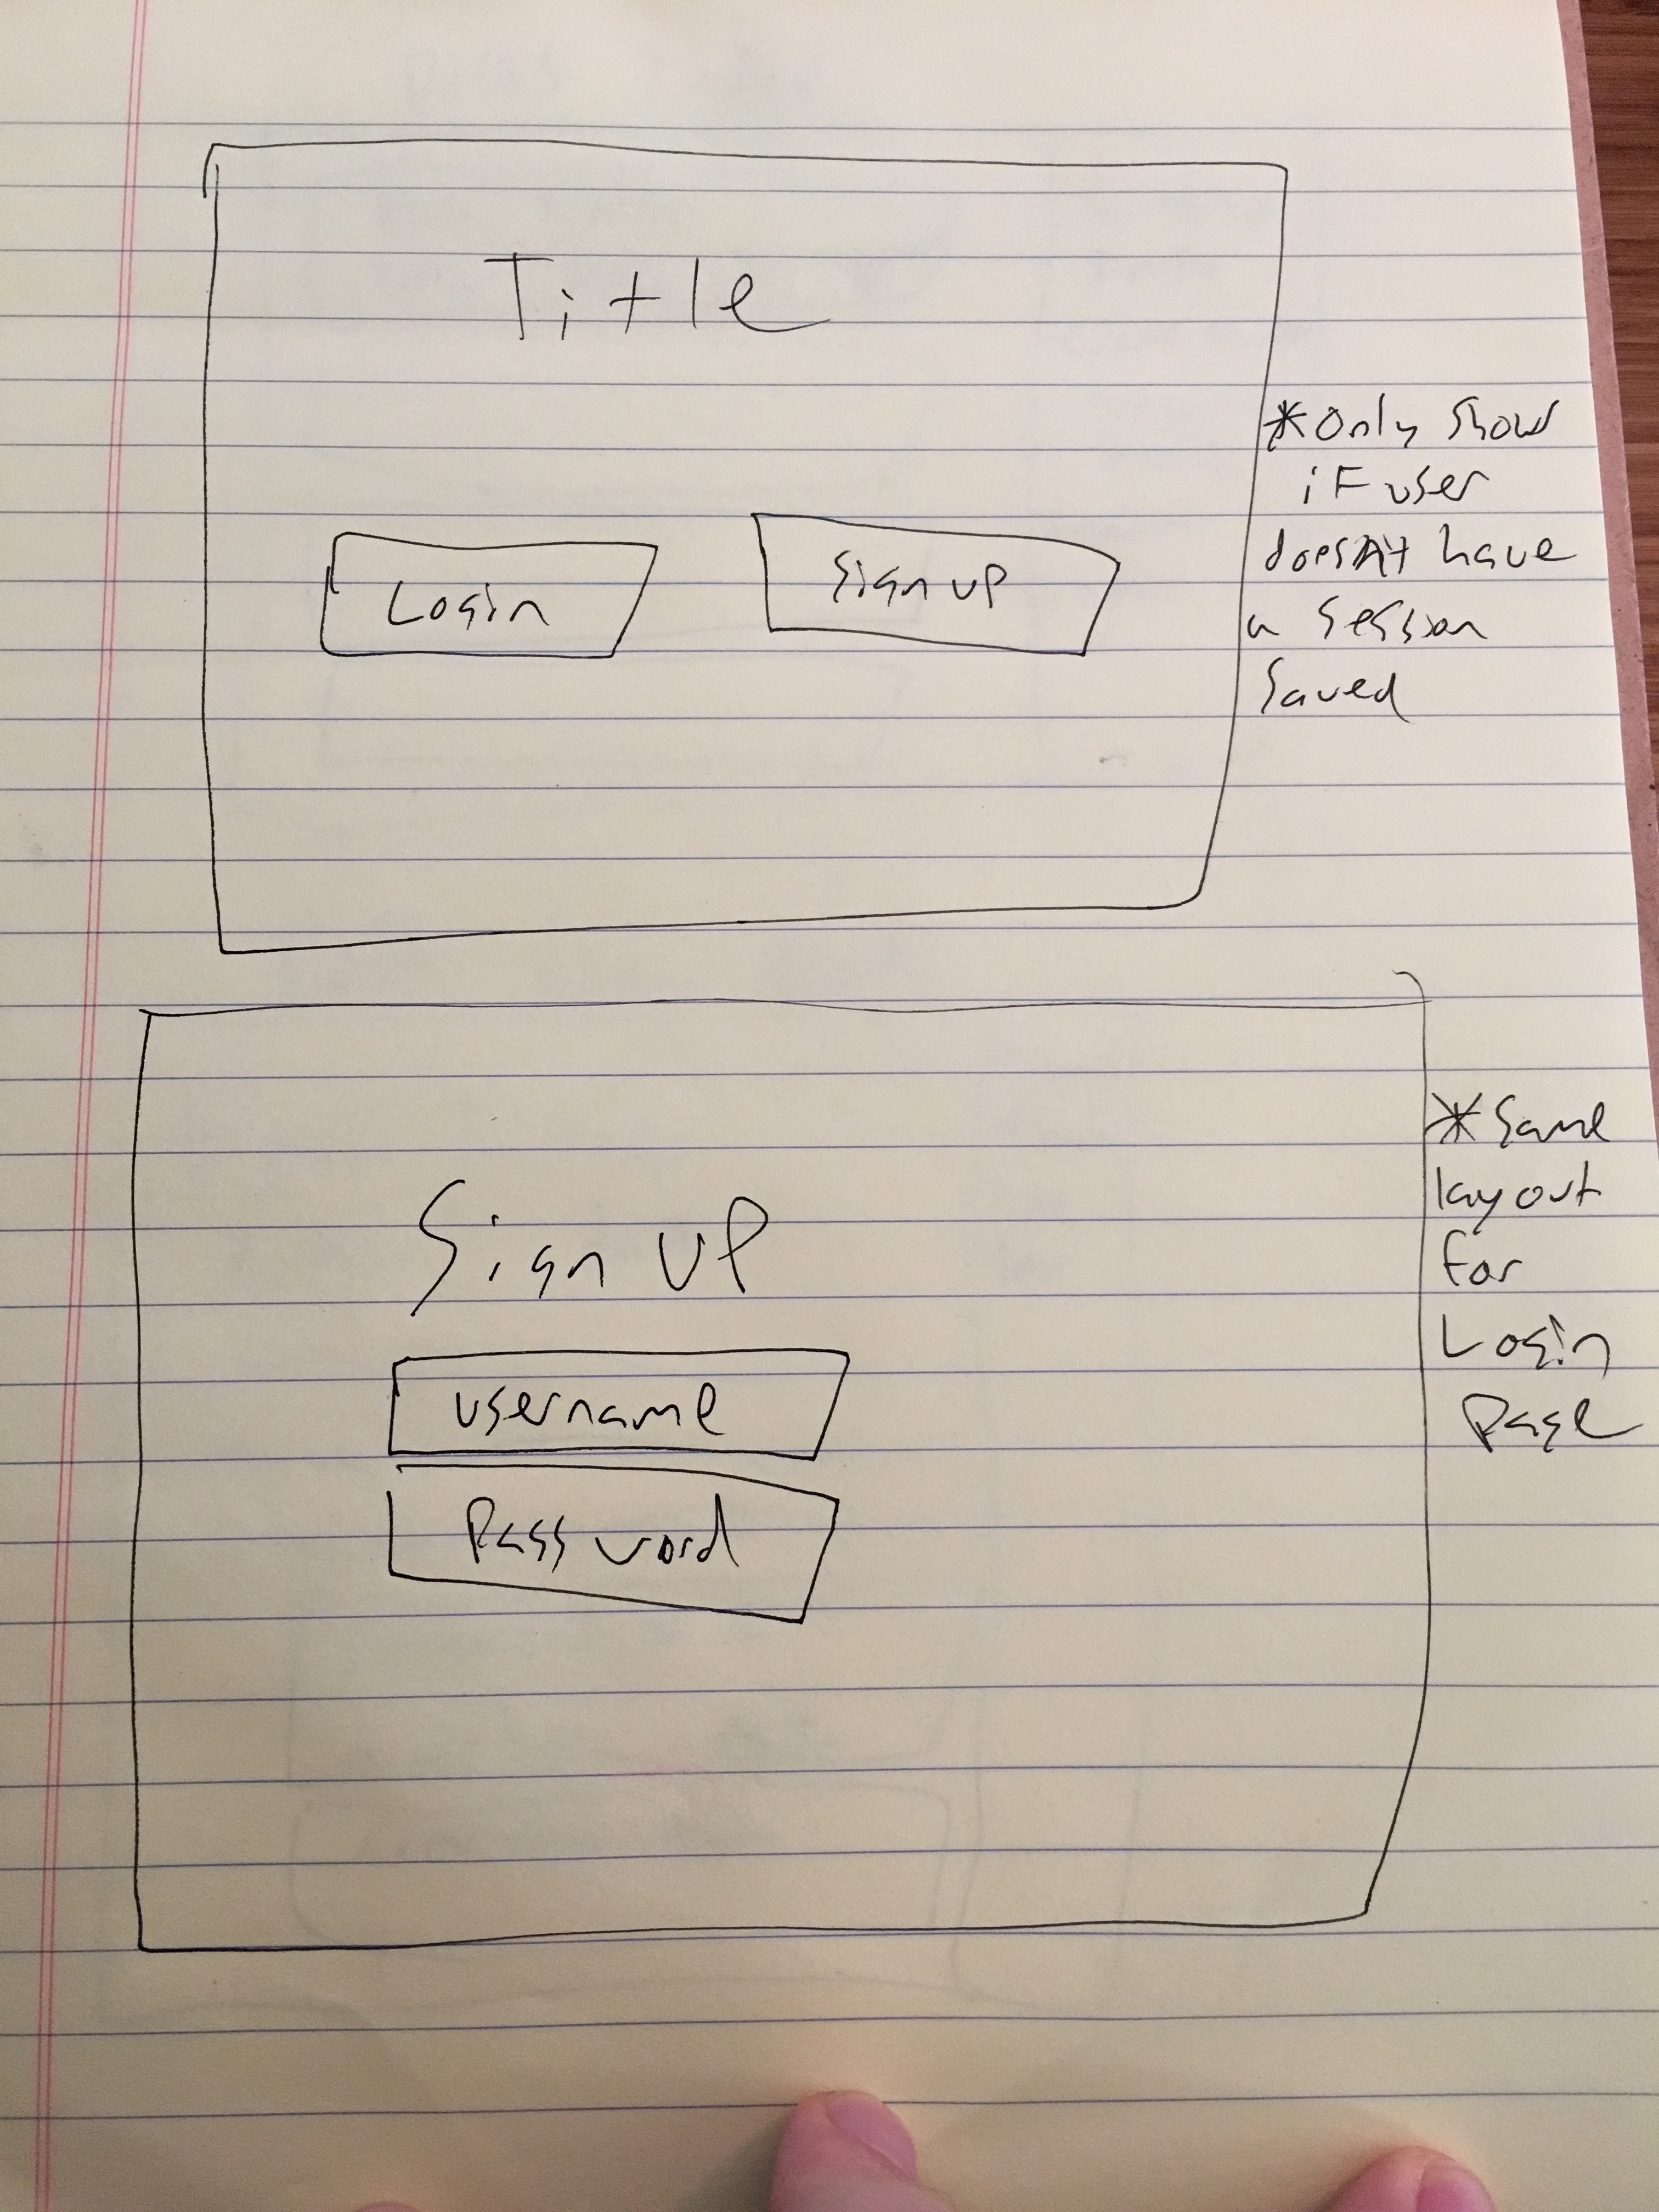 Title
Login
Sign up
*only show
if user
doesn't have
a session
saved
Sign up
username
Password
*Same
layout
for
Login
Page